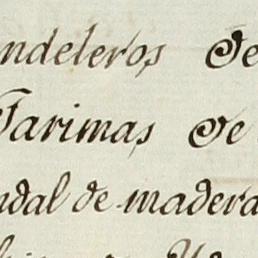 ndeleros De
Tarimas De
ndal de madera